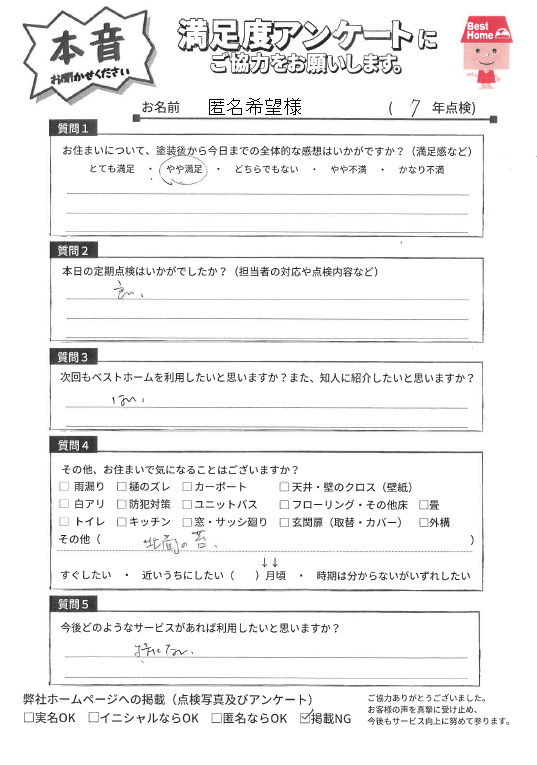 本音
お聞かせください
満足度アンケートに
ご協力をお願いします。
Best Home
お名前 匿名希望様 ( 7 年点検)
質問1
お住まいについて、塗装後から今日までの全体的な感想はいかがですか?(満足感など)
とても満足 ・ やや満足 ・ どちらでもない ・ やや不満 ・ かなり不満
質問2
本日の定期点検はいかがでしたか?(担当者の対応や点検内容など)
良い。
質問3
次回もベストホームを利用したいと思いますか?また、知人に紹介したいと思いますか?
はい。
質問4
その他、お住まいで気になることはございますか?
□ 雨漏り □ 樋のズレ □ カーポート □ 天井・壁のクロス(壁紙)
□ 白アリ □ 防犯対策 □ ユニットバス □ フローリング・その他床 □畳
□ トイレ □ キッチン □ 窓・サッシ廻り □ 玄関扉(取替・カバー) □外構
その他( 北面の苔。 )
↓↓
すぐしたい ・ 近いうちにしたい( )月頃 ・ 時期は分からないがいずれしたい
質問5
今後どのようなサービスがあれば利用したいと思いますか?
特にない。
弊社ホームページへの掲載(点検写真及びアンケート)
□実名OK □イニシャルならOK □匿名ならOK ☑掲載NG
ご協力ありがとうございました。
お客様の声を真摯に受け止め、
今後もサービス向上に努めて参ります。